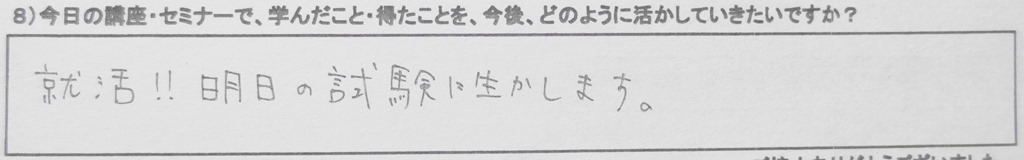 8)今日の講座・セミナーで、学んだこと・得たことを、今後、どのように活かしていきたいですか？
就活!! 明日の試験に生かします。